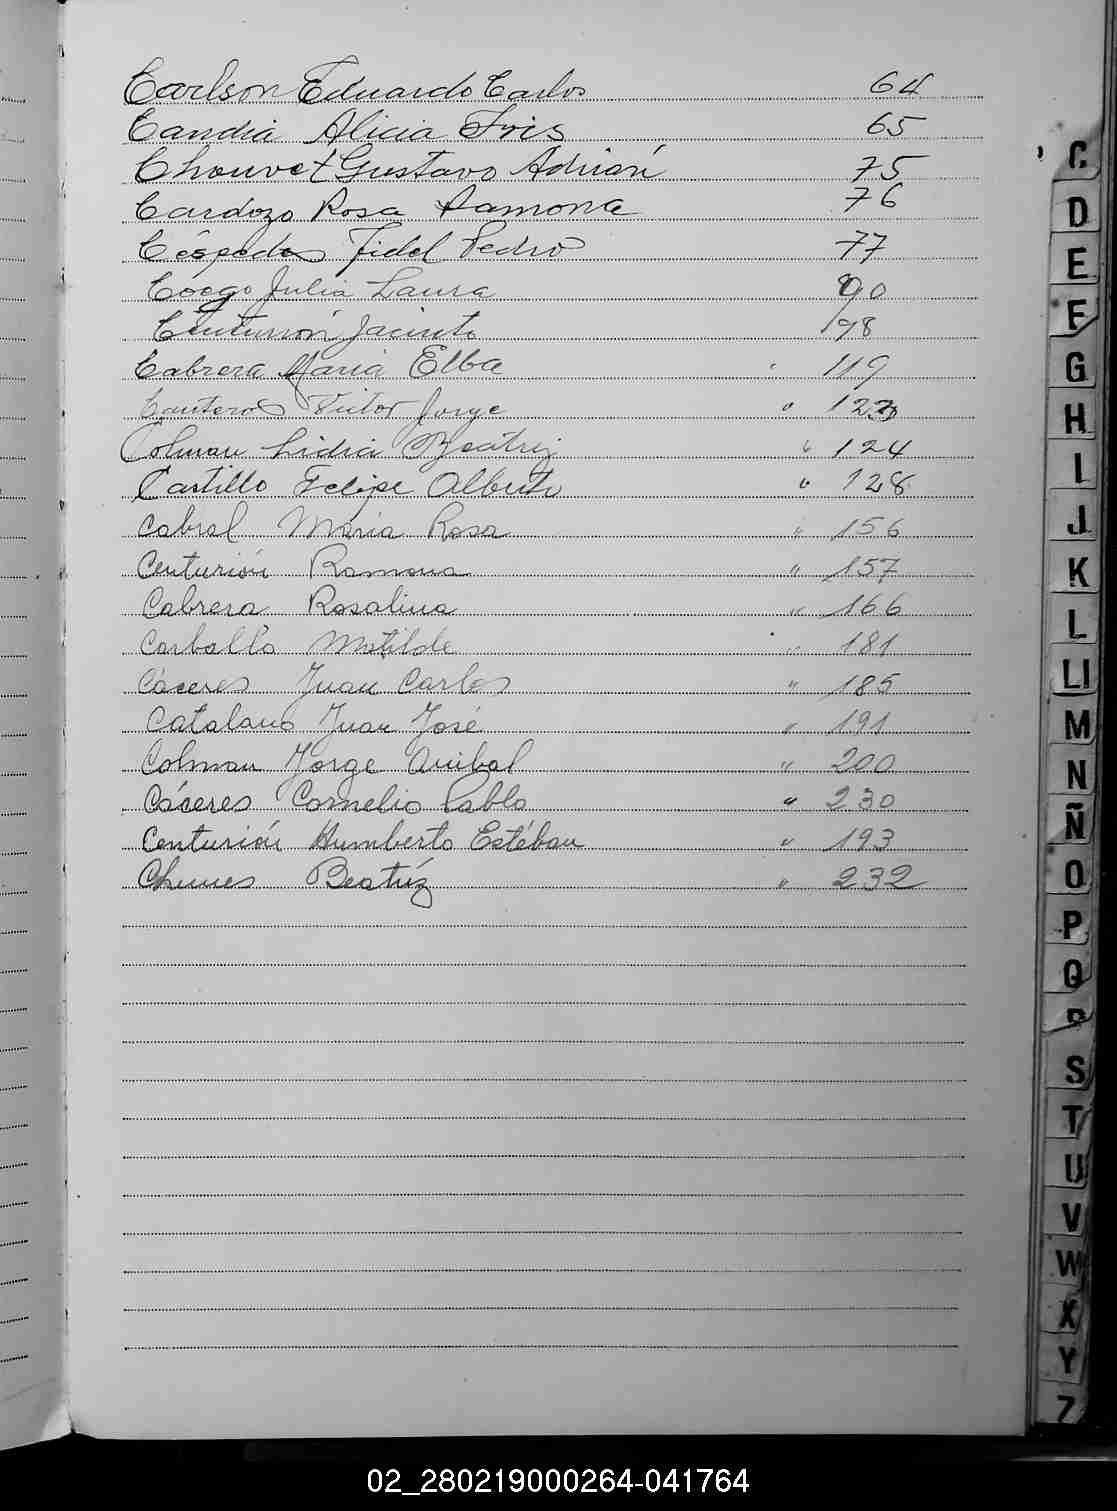 Carlson Eduardo Carlos 64
Candia Alicia Iris 65
Chouvet Gustavo Adrián 75
Cardozo Rosa Ramona 76
Céspedes Fidel Pedro 77
Goego Julia Laura 90
Centurión Jacinto 98
Cabrera María Elba 119
Canteros Victor Jorge " 123
Colman Lidia Beatriz " 124
Castillo Felipe Alberto " 128
Cabral Maria Rosa " 156
Centurión Ramona " 157
Cabrera Rosalina " 166
Carballo Matilde " 181
Cáceres Juan Carlos " 185
Catalano Juan José " 191
Colman Jorge Anibal " 200
Cáceres Cornelio Pablo " 230
Centurión Humberto Estéban " 193
Chunes Beatríz " 232
C
D
E
F
G
H
I
J
K
L
Ll
M
N
Ñ
O
P
Q
R
S
T
U
V
W
X
Y
Z
02_280219000264-041764